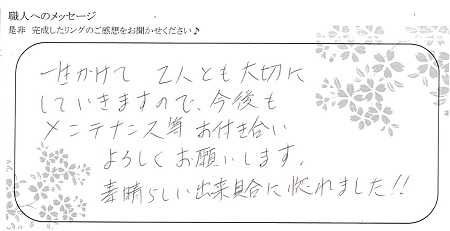 職人へのメッセージ
是非 完成したリングのご感想をお聞かせください♪
一生かけて 2人とも大切に
していきますので、今後も
メンテナンス等 お付き合い
よろしくお願いします。
素晴らしい出来具合に惚れました!!